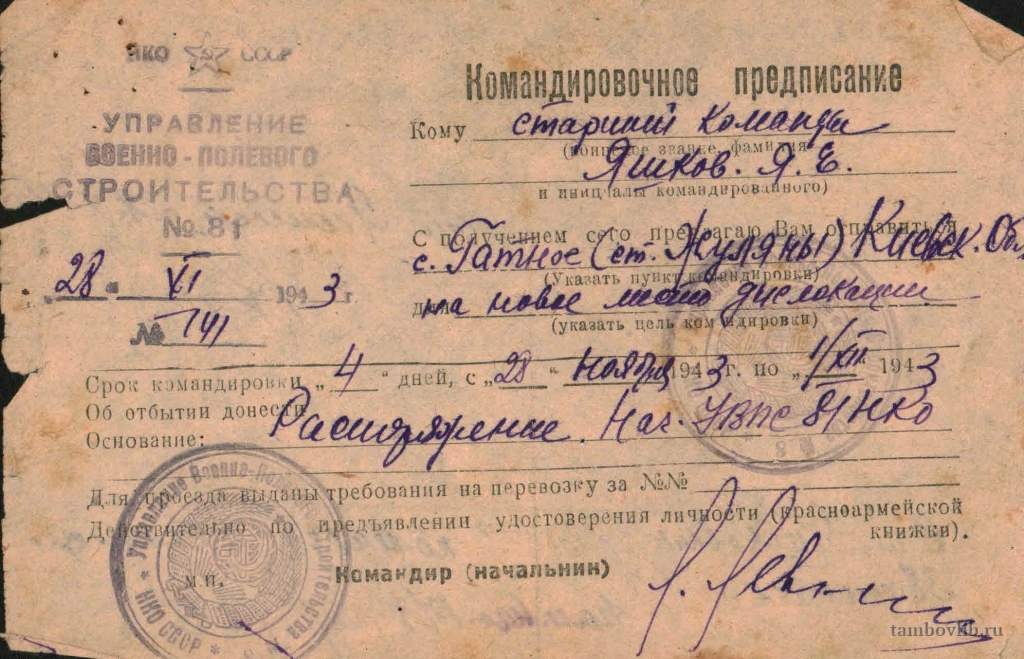 НКО СССР
УПРАВЛЕНИЕ
ВОЕННО-ПОЛЕВОГО
СТРОИТЕЛЬСТВА
№ 81
„28“ XI 1943 г.
№ 741
Командировочное предписание
Кому старший команды
(воинское звание, фамилия
Яшков. Я. Е.
и инициалы командированного)
С получением сего предлагаю Вам отправиться
с. Гатное (ст. Жуляны) Киевск. Обл
(Указать пункт командировки)
для на новое место дислокации
(указать цель командировки)
Срок командировки „4“ дней, с „28“ ноября 1943 г. по „1/XII 1943
Об отбытии донести
Основание: Распоряжение Нач. УВПС 81 НКО
Для проезда выданы требования на перевозку за №№
Действительно по предъявлении удостоверения личности (красноармейской
книжки).
М.П.
Командир (начальник)
Управление Военно-Полевого Строительства
НКО СССР
№ 81
tambovlib.ru